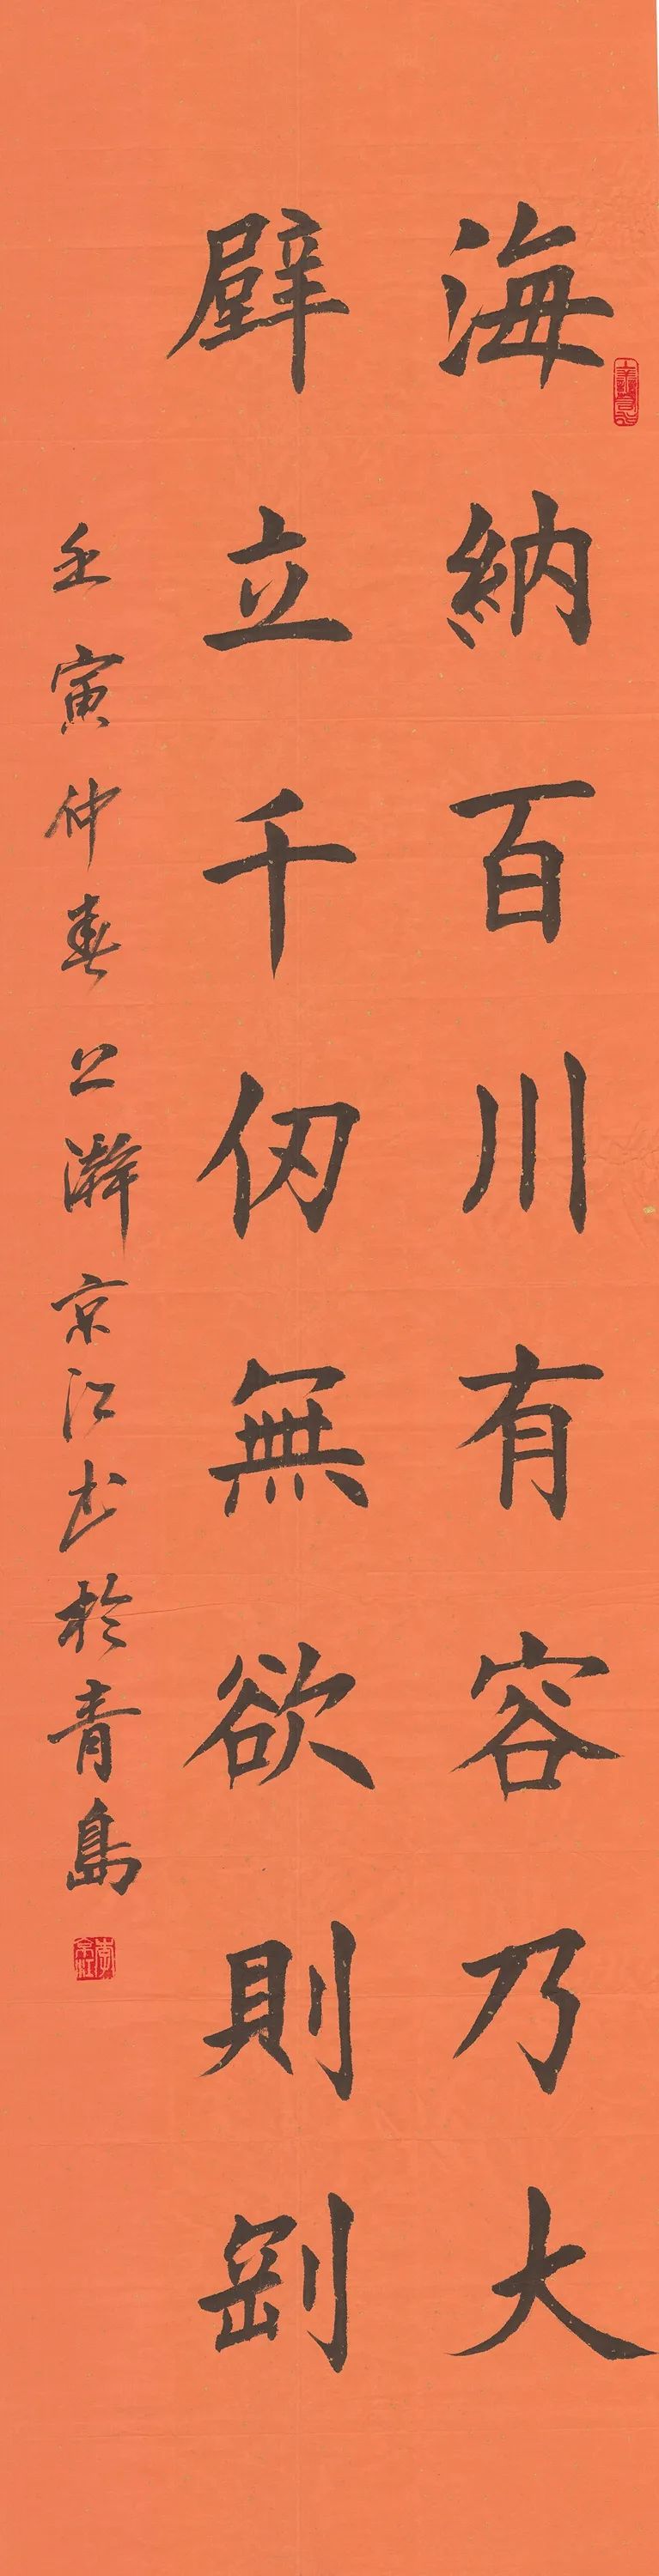 海納百川有容乃大
壁立千仞無欲則剛
壬寅仲春 公瀚京江书於青島